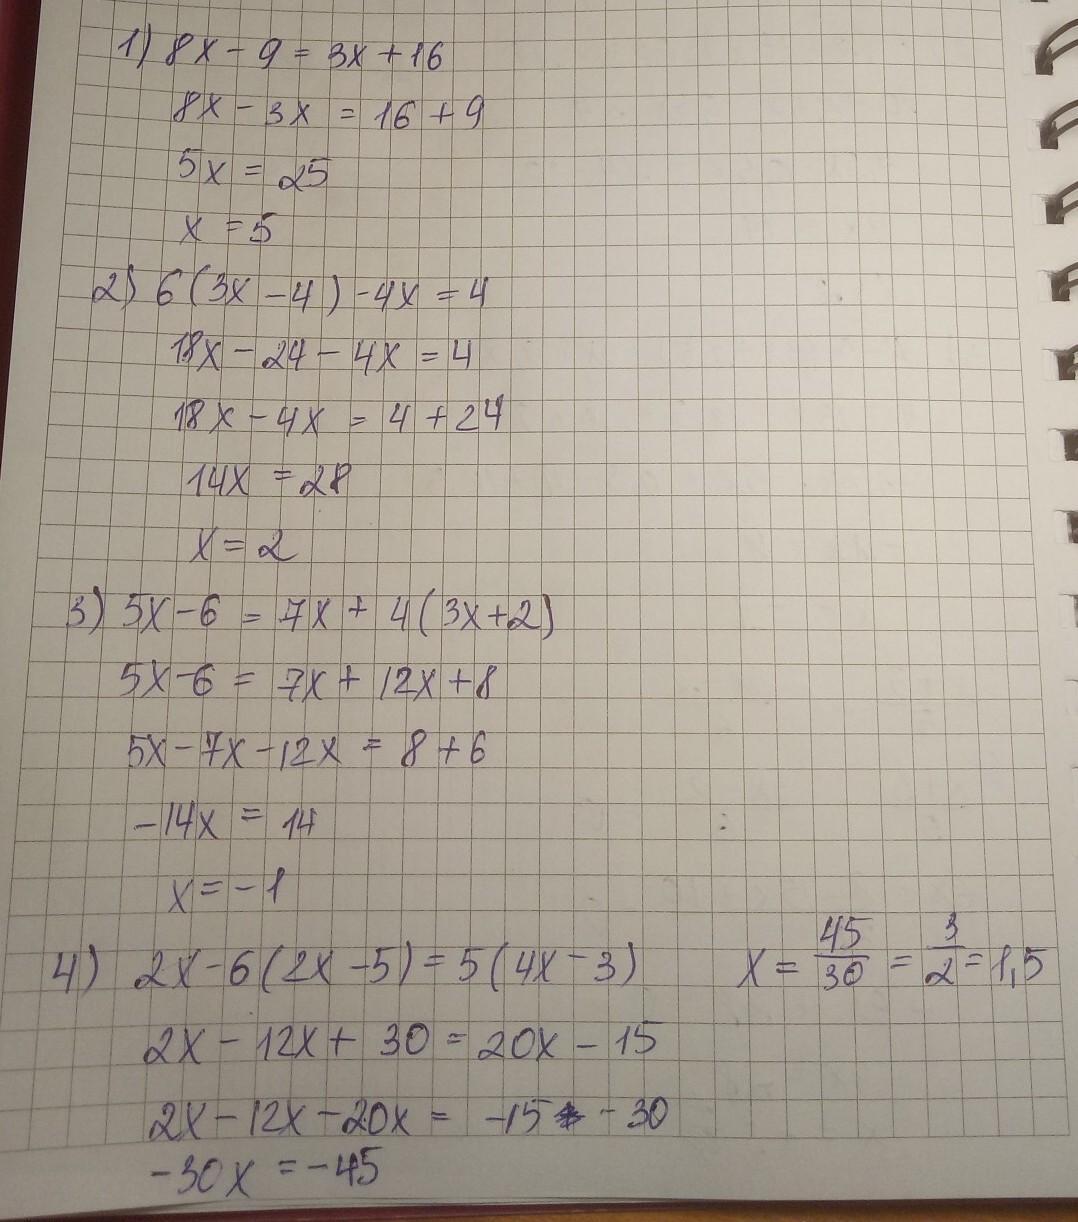 1) 8x - 9 = 3x + 16
8x - 3x = 16 + 9
5x = 25
x = 5
2) 6(3x - 4) - 4x = 4
18x - 24 - 4x = 4
18x - 4x = 4 + 24
14x = 28
x = 2
3) 5x - 6 = 7x + 4(3x + 2)
5x - 6 = 7x + 12x + 8
5x - 7x - 12x = 8 + 6
-14x = 14
x = -1
4) 2x - 6(2x - 5) = 5(4x - 3)
2x - 12x + 30 = 20x - 15
2x - 12x - 20x = -15 - 30
-30x = -45
x = 45/30 = 3/2 = 1,5